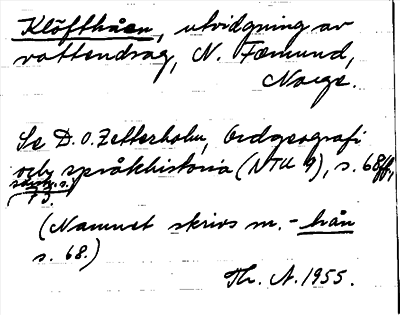 Klöfthåen, utvidgning av
vattendrag, N. Fæmund,
Norge.
Se D. O. Zetterholm, Ordgeografi
och språkhistoria (NTU 9), s. 68ff,
73.
(Namnet skrivs m. -hån
s. 68.)
Th. A. 1955.